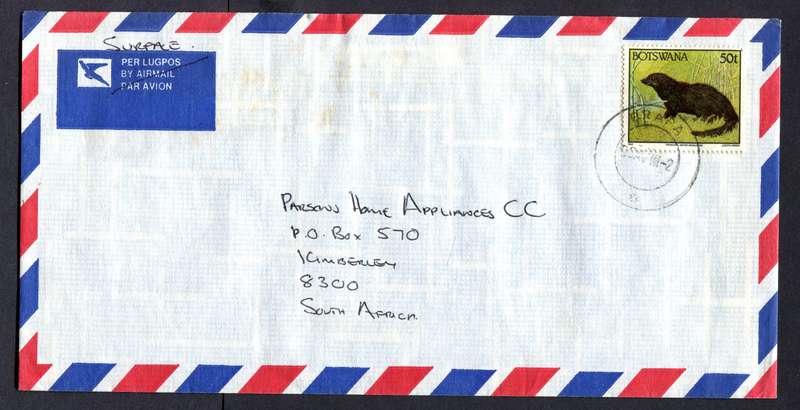 Surface
PER LUGPOS
BY AIRMAIL
PAR AVION
BOTSWANA 50t
Parsons Home Appliances CC
P.O. Box 570
Kimberley
8300
South Africa